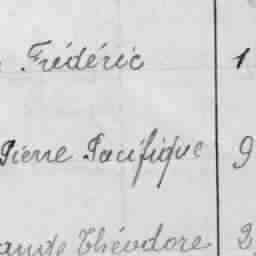 Frédéric 1
Pierre Pacifique 9
Théodore 2